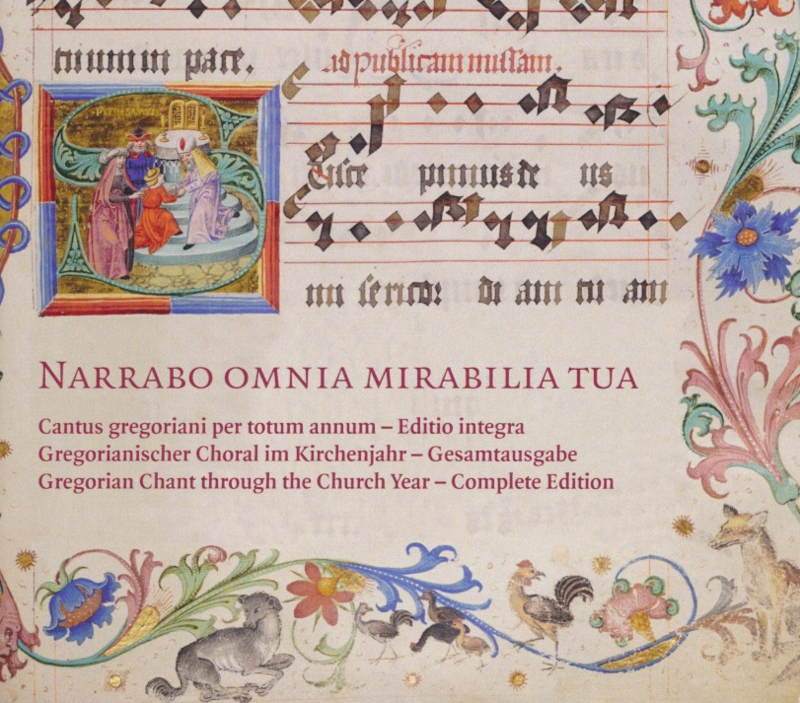 tuum in pace. ad publicam missam.
usce pimus de us
mi sericor di am tu am
NARRABO OMNIA MIRABILIA TUA
Cantus gregoriani per totum annum – Editio integra
Gregorianischer Choral im Kirchenjahr – Gesamtausgabe
Gregorian Chant through the Church Year – Complete Edition